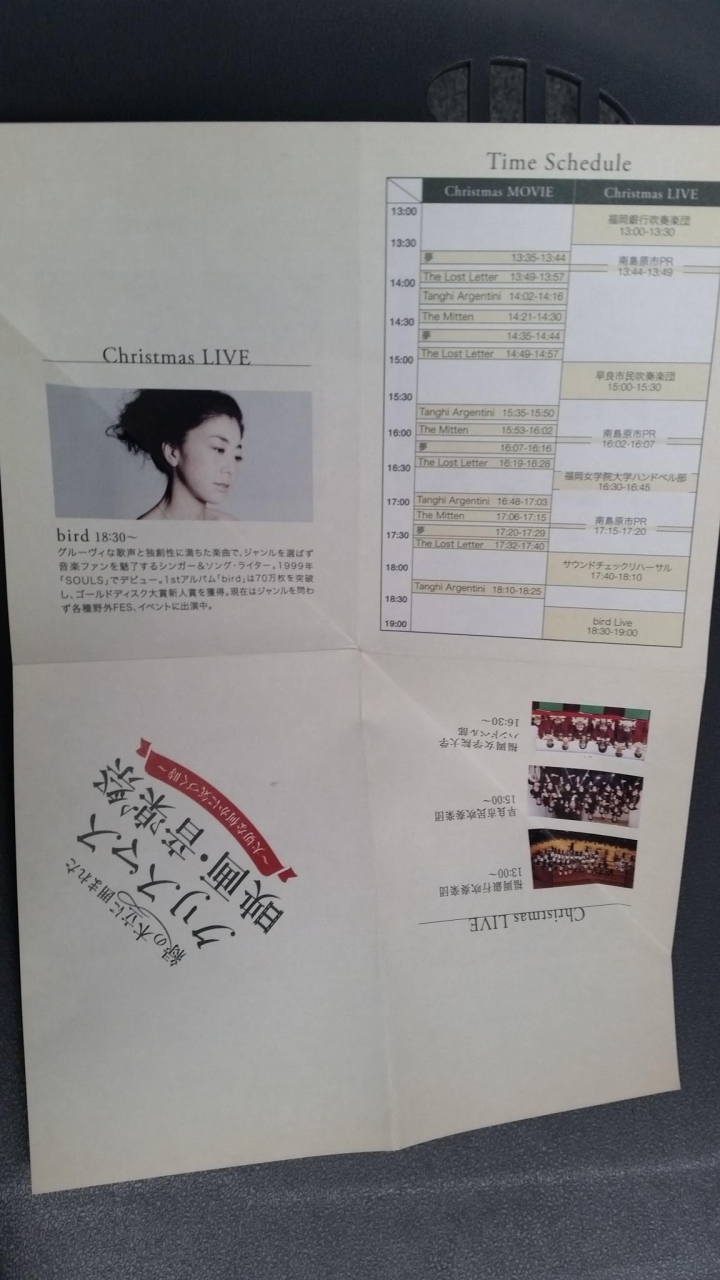 Time Schedule
Christmas MOVIE
Christmas LIVE
13:00
福岡銀行吹奏楽団
13:00-13:30
13:30
夢 13:35-13:44
南島原市PR
13:44-13:49
The Lost Letter 13:49-13:57
14:00
Tanghi Argentini 14:02-14:16
The Mitten 14:21-14:30
14:30
夢 14:35-14:44
The Lost Letter 14:49-14:57
15:00
早良市民吹奏楽団
15:00-15:30
15:30
Tanghi Argentini 15:35-15:50
The Mitten 15:53-16:02
16:00
南島原市PR
16:02-16:07
夢 16:07-16:16
The Lost Letter 16:19-16:28
16:30
福岡女学院大学ハンドベル部
16:30-16:45
Tanghi Argentini 16:48-17:03
17:00
The Mitten 17:06-17:15
南島原市PR
17:15-17:20
夢 17:20-17:29
17:30
The Lost Letter 17:32-17:40
サウンドチェックリハーサル
17:40-18:10
18:00
Tanghi Argentini 18:10-18:25
18:30
bird Live
18:30-19:00
19:00
Christmas LIVE
bird 18:30～
グルーヴィな歌声と独創性に満ちた楽曲で、ジャンルを選ばず
音楽ファンを魅了するシンガー&ソング・ライター。1999年
「SOULS」でデビュー。1stアルバム「bird」は70万枚を突破
し、ゴールドディスク大賞新人賞を獲得。現在はジャンルを問わ
ず各種野外FES、イベントに出演中。
緑の木立に囲まれた
クリスマス
映画・音楽祭
～大切な何かに気づく時～
Christmas LIVE
福岡銀行吹奏楽団
13:00～
早良市民吹奏楽団
15:00～
福岡女学院大学
ハンドベル部
16:30～